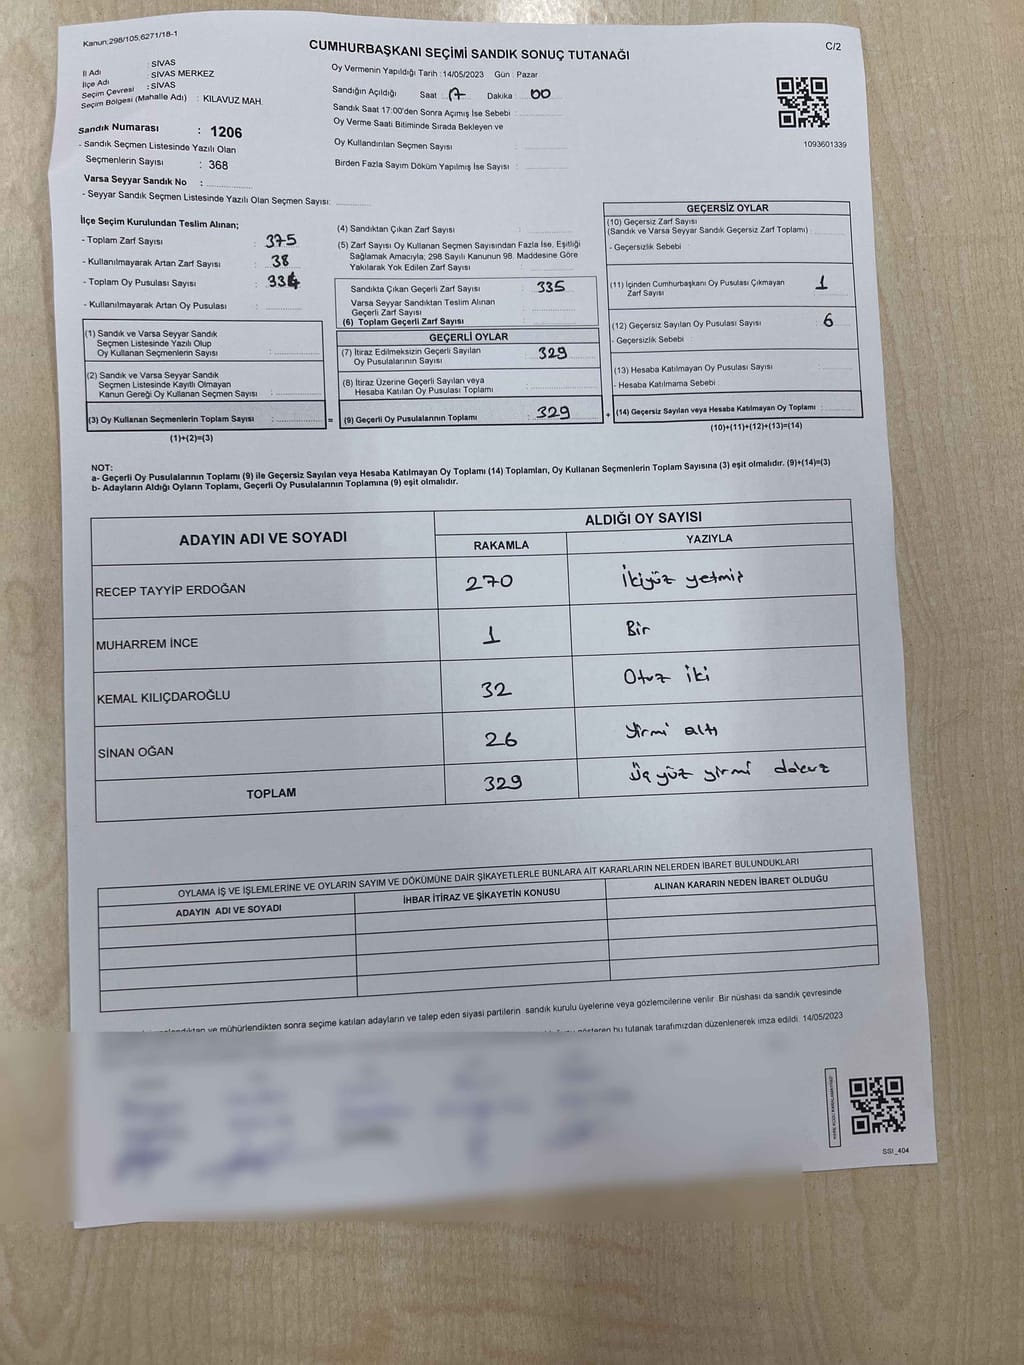 Kanun:298/105,6271/18-1
CUMHURBAŞKANI SEÇİMİ SANDIK SONUÇ TUTANAĞI
C/2
İl Adı : SİVAS
İlçe Adı : SİVAS MERKEZ
Seçim Çevresi : SİVAS
Seçim Bölgesi (Mahalle Adı) : KILAVUZ MAH.
Sandık Numarası : 1206
- Sandık Seçmen Listesinde Yazılı Olan
Seçmenlerin Sayısı : 368
Varsa Seyyar Sandık No :
- Seyyar Sandık Seçmen Listesinde Yazılı Olan Seçmen Sayısı:
Oy Vermenin Yapıldığı Tarih :14/05/2023 Gün : Pazar
Sandığın Açıldığı Saat : 17 Dakika : 00
Sandık Saat 17:00'den Sonra Açımış İse Sebebi :
Oy Verme Saati Bitiminde Sırada Bekleyen ve
Oy Kullandırılan Seçmen Sayısı :
Birden Fazla Sayım Döküm Yapılmış İse Sayısı :
1093601339
İlçe Seçim Kurulundan Teslim Alınan;
- Toplam Zarf Sayısı : 375
- Kullanılmayarak Artan Zarf Sayısı : 38
- Toplam Oy Pusulası Sayısı : 334
- Kullanılmayarak Artan Oy Pusulası :
(1) Sandık ve Varsa Seyyar Sandık
Seçmen Listesinde Yazılı Olup
Oy Kullanan Seçmenlerin Sayısı :
(2) Sandık ve Varsa Seyyar Sandık
Seçmen Listesinde Kayıtlı Olmayan
Kanun Gereği Oy Kullanan Seçmen Sayısı :
(3) Oy Kullanan Seçmenlerin Toplam Sayısı : =
(1)+(2)=(3)
(4) Sandıktan Çıkan Zarf Sayısı :
(5) Zarf Sayısı Oy Kullanan Seçmen Sayısından Fazla İse, Eşitliği
Sağlamak Amacıyla; 298 Sayılı Kanunun 98. Maddesine Göre
Yakılarak Yok Edilen Zarf Sayısı :
Sandıkta Çıkan Geçerli Zarf Sayısı : 335
Varsa Seyyar Sandıktan Teslim Alınan
Geçerli Zarf Sayısı :
(6) Toplam Geçerli Zarf Sayısı :
GEÇERLİ OYLAR
(7) İtiraz Edilmeksizin Geçerli Sayılan
Oy Pusulalarının Sayısı : 329
(8) İtiraz Üzerine Geçerli Sayılan veya
Hesaba Katılan Oy Pusulası Toplamı :
(9) Geçerli Oy Pusulalarının Toplamı : 329 +
GEÇERSİZ OYLAR
(10) Geçersiz Zarf Sayısı
(Sandık ve Varsa Seyyar Sandık Geçersiz Zarf Toplamı) :
- Geçersizlik Sebebi :
(11) İçinden Cumhurbaşkanı Oy Pusulası Çıkmayan
Zarf Sayısı : 1
(12) Geçersiz Sayılan Oy Pusulası Sayısı : 6
- Geçersizlik Sebebi :
(13) Hesaba Katılmayan Oy Pusulası Sayısı :
- Hesaba Katılmama Sebebi :
(14) Geçersiz Sayılan veya Hesaba Katılmayan Oy Toplamı :
(10)+(11)+(12)+(13)=(14)
NOT:
a- Geçerli Oy Pusulalarının Toplamı (9) ile Geçersiz Sayılan veya Hesaba Katılmayan Oy Toplamı (14) Toplamları, Oy Kullanan Seçmenlerin Toplam Sayısına (3) eşit olmalıdır. (9)+(14)=(3)
b- Adayların Aldığı Oyların Toplamı, Geçerli Oy Pusulalarının Toplamına (9) eşit olmalıdır.
ADAYIN ADI VE SOYADI
ALDIĞI OY SAYISI
RAKAMLA YAZIYLA
RECEP TAYYİP ERDOĞAN 270 İkiyüz yetmiş
MUHARREM İNCE 1 Bir
KEMAL KILIÇDAROĞLU 32 Otuz iki
SİNAN OĞAN 26 Yirmi altı
TOPLAM 329 Üçyüz yirmi dokuz
OYLAMA İŞ VE İŞLEMLERİNE VE OYLARIN SAYIM VE DÖKÜMÜNE DAİR ŞİKAYETLERLE BUNLARA AİT KARARLARIN NELERDEN İBARET BULUNDUKLARI
ADAYIN ADI VE SOYADI İHBAR İTİRAZ VE ŞİKAYETİN KONUSU ALINAN KARARIN NEDEN İBARET OLDUĞU
ve mühürlendikten sonra seçime katılan adayların ve talep eden siyasi partilerin sandık kurulu üyelerine veya gözlemcilerine verilir. Bir nüshası da sandık çevresinde
gösteren bu tutanak tarafımızdan düzenlenerek imza edildi. 14/05/2023
SSI_404